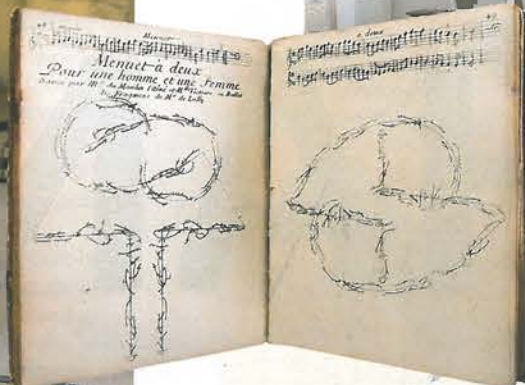 Menuet
Menuet à deux
Pour une homme et une femme
Dancée par Mr. du Moulin l'aîné et Mlle. Victoire au Ballet
des Fragments de Mr. de Lully
à deux